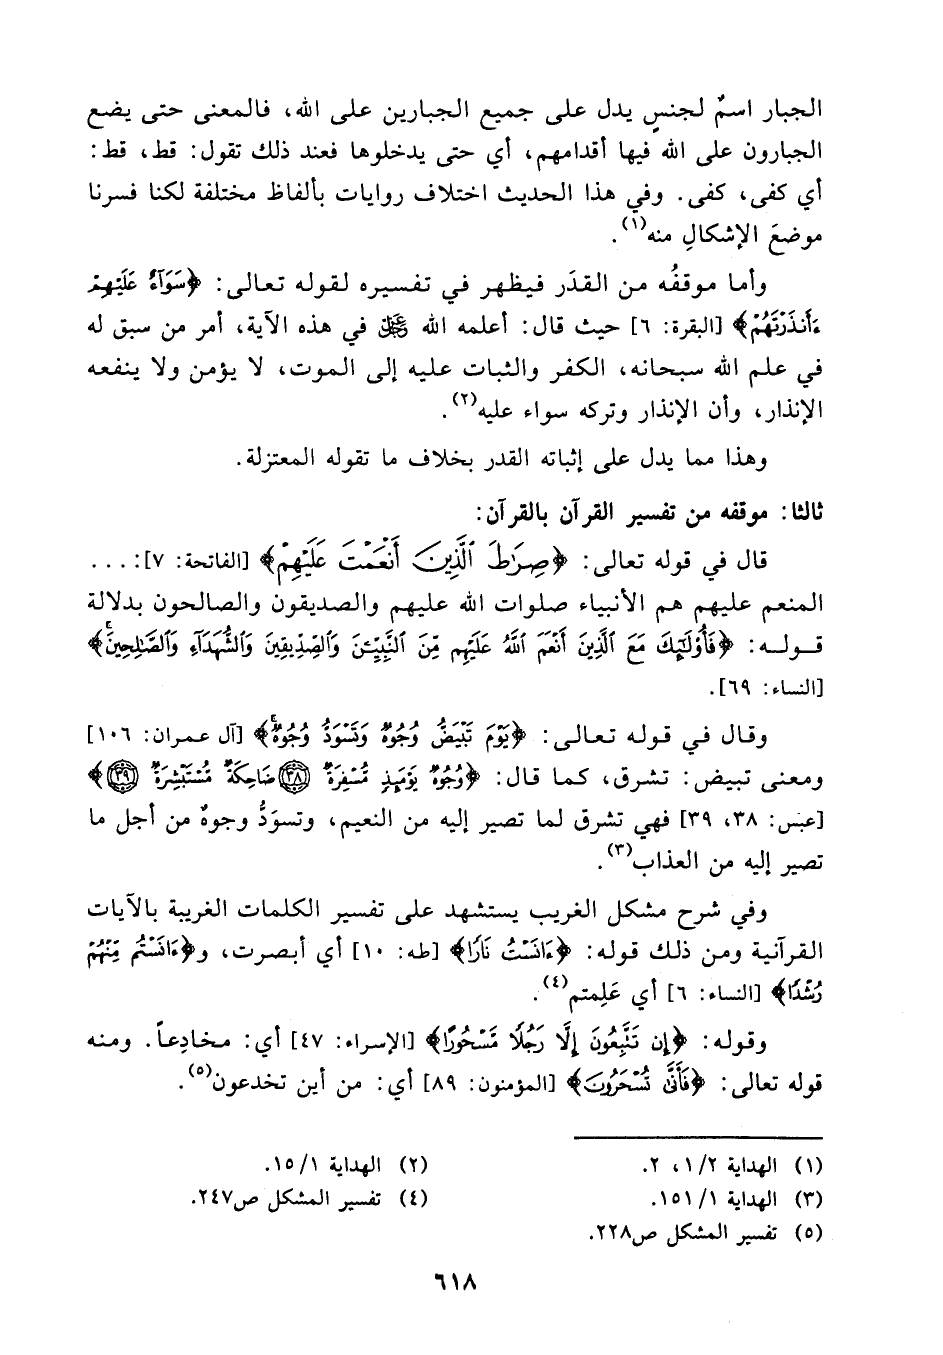 الجبار اسمٌ لجنسٍ يدل على جميع الجبارين على الله، فالمعنى حتى يضع
الجبارون على الله فيها أقدامهم، أي حتى يدخلوها فعند ذلك تقول: قط، قط:
أي كفى، كفى. وفي هذا الحديث اختلاف روايات بألفاظ مختلفة لكنا فسرنا
موضعَ الإشكالِ منه(١).
وأما موقفُه من القدَر فيظهر في تفسيره لقوله تعالى: ﴿سَوَآءٌ عَلَيْهِمْ
ءَأَنذَرْتَهُمْ﴾ [البقرة: ٦] حيث قال: أعلمه الله ﷺ في هذه الآية، أمر من سبق له
في علم الله سبحانه، الكفر والثبات عليه إلى الموت، لا يؤمن ولا ينفعه
الإنذار، وأن الإنذار وتركه سواء عليه(٢).
وهذا مما يدل على إثباته القدر بخلاف ما تقوله المعتزلة.
ثالثا: موقفه من تفسير القرآن بالقرآن:
قال في قوله تعالى: ﴿صِرَٰطَ ٱلَّذِينَ أَنْعَمْتَ عَلَيْهِمْ﴾ [الفاتحة: ٧]: ...
المنعم عليهم هم الأنبياء صلوات الله عليهم والصديقون والصالحون بدلالة
قوله: ﴿فَأُو۟لَٰٓئِكَ مَعَ ٱلَّذِينَ أَنْعَمَ ٱللَّهُ عَلَيْهِم مِّنَ ٱلنَّبِيِّـۧنَ وَٱلصِّدِّيقِينَ وَٱلشُّهَدَآءِ وَٱلصَّٰلِحِينَۚ﴾
[النساء: ٦٩].
وقال في قوله تعالى: ﴿يَوْمَ تَبْيَضُّ وُجُوهٌ وَتَسْوَدُّ وُجُوهٌۚ﴾ [آل عمران: ١٠٦]
ومعنى تبيض: تشرق، كما قال: ﴿وُجُوهٌ يَوْمَئِذٍ مُّسْفِرَةٌ ٣٨ ضَاحِكَةٌ مُّسْتَبْشِرَةٌ ٣٩﴾
[عبس: ٣٨، ٣٩] فهي تشرق لما تصير إليه من النعيم، وتسودُّ وجوهٌ من أجل ما
تصير إليه من العذاب(٣).
وفي شرح مشكل الغريب يستشهد على تفسير الكلمات الغريبة بالآيات
القرآنية ومن ذلك قوله: ﴿ءَانَسْتُ نَارًا﴾ [طه: ١٠] أي أبصرت، و﴿ءَانَسْتُم مِّنْهُمْ
رُشْدًا﴾ [النساء: ٦] أي عَلِمتم(٤).
وقوله: ﴿إِن تَتَّبِعُونَ إِلَّا رَجُلًا مَّسْحُورًا﴾ [الإسراء: ٤٧] أي: مخادِعاً. ومنه
قوله تعالى: ﴿فَأَنَّىٰ تُسْحَرُونَ﴾ [المؤمنون: ٨٩] أي: من أين تخدعون(٥).
(١) الهداية ١/٢، ٢.
(٢) الهداية ١٥/١.
(٣) الهداية ١٥١/١.
(٤) تفسير المشكل ص٢٤٧.
(٥) تفسير المشكل ص٢٢٨.
٦١٨